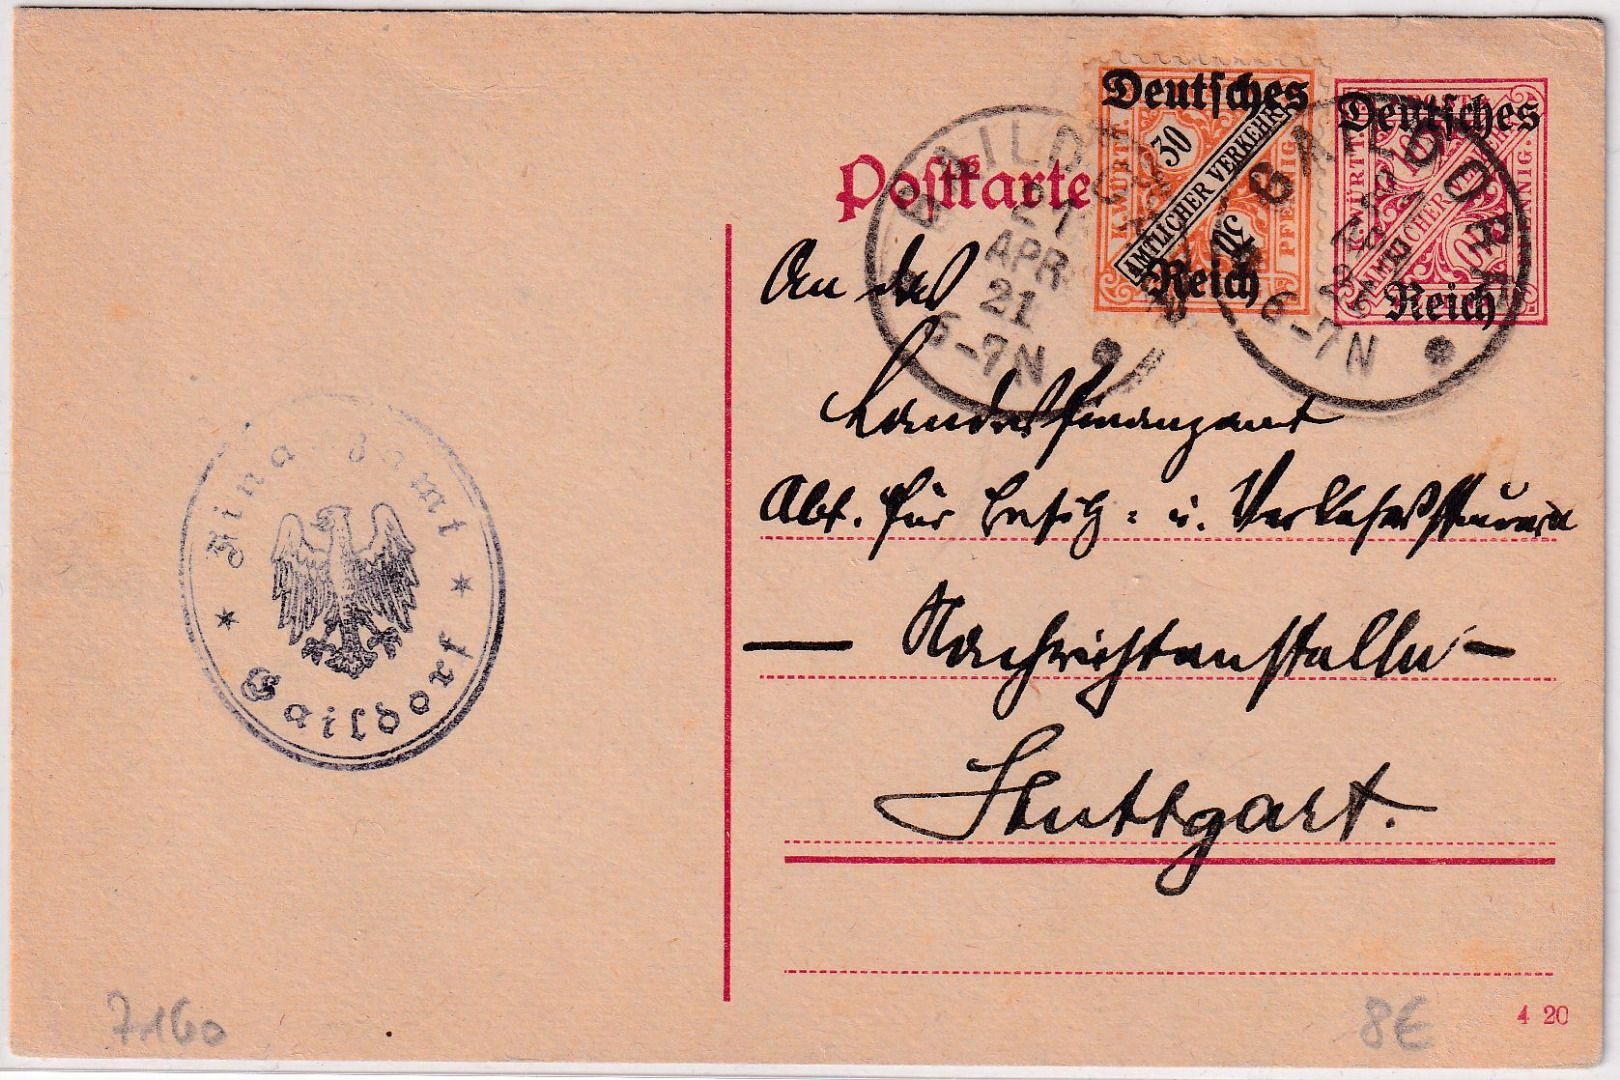 Postkarte
Deutsches
Reich
K.WÜRTT.
30
AMTLICHER VERKEHR
30
PFENNIG
Deutsches
Reich
WÜRTT.
10
AMTLICHER VERKEHR
10
PFENNIG.
GAILDORF
21
APR
21
6-7N
GAILDORF
6-7N
An das
Landesfinanzamt
Abt. für Besitz- u. Verkehrssteuern
— Nachrichtenstelle —
Stuttgart.
Finanzamt
Gaildorf
7160
8€
4 20